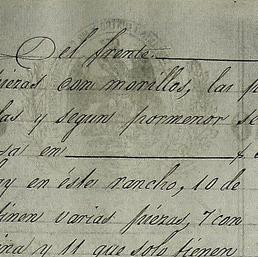 Del frente
piezas con morillos, las p
las y segun pormenor se
sa en $
ay en éste rancho, 10 de
tinen varias piezas, 7 con
ina y 11 que solo tienen